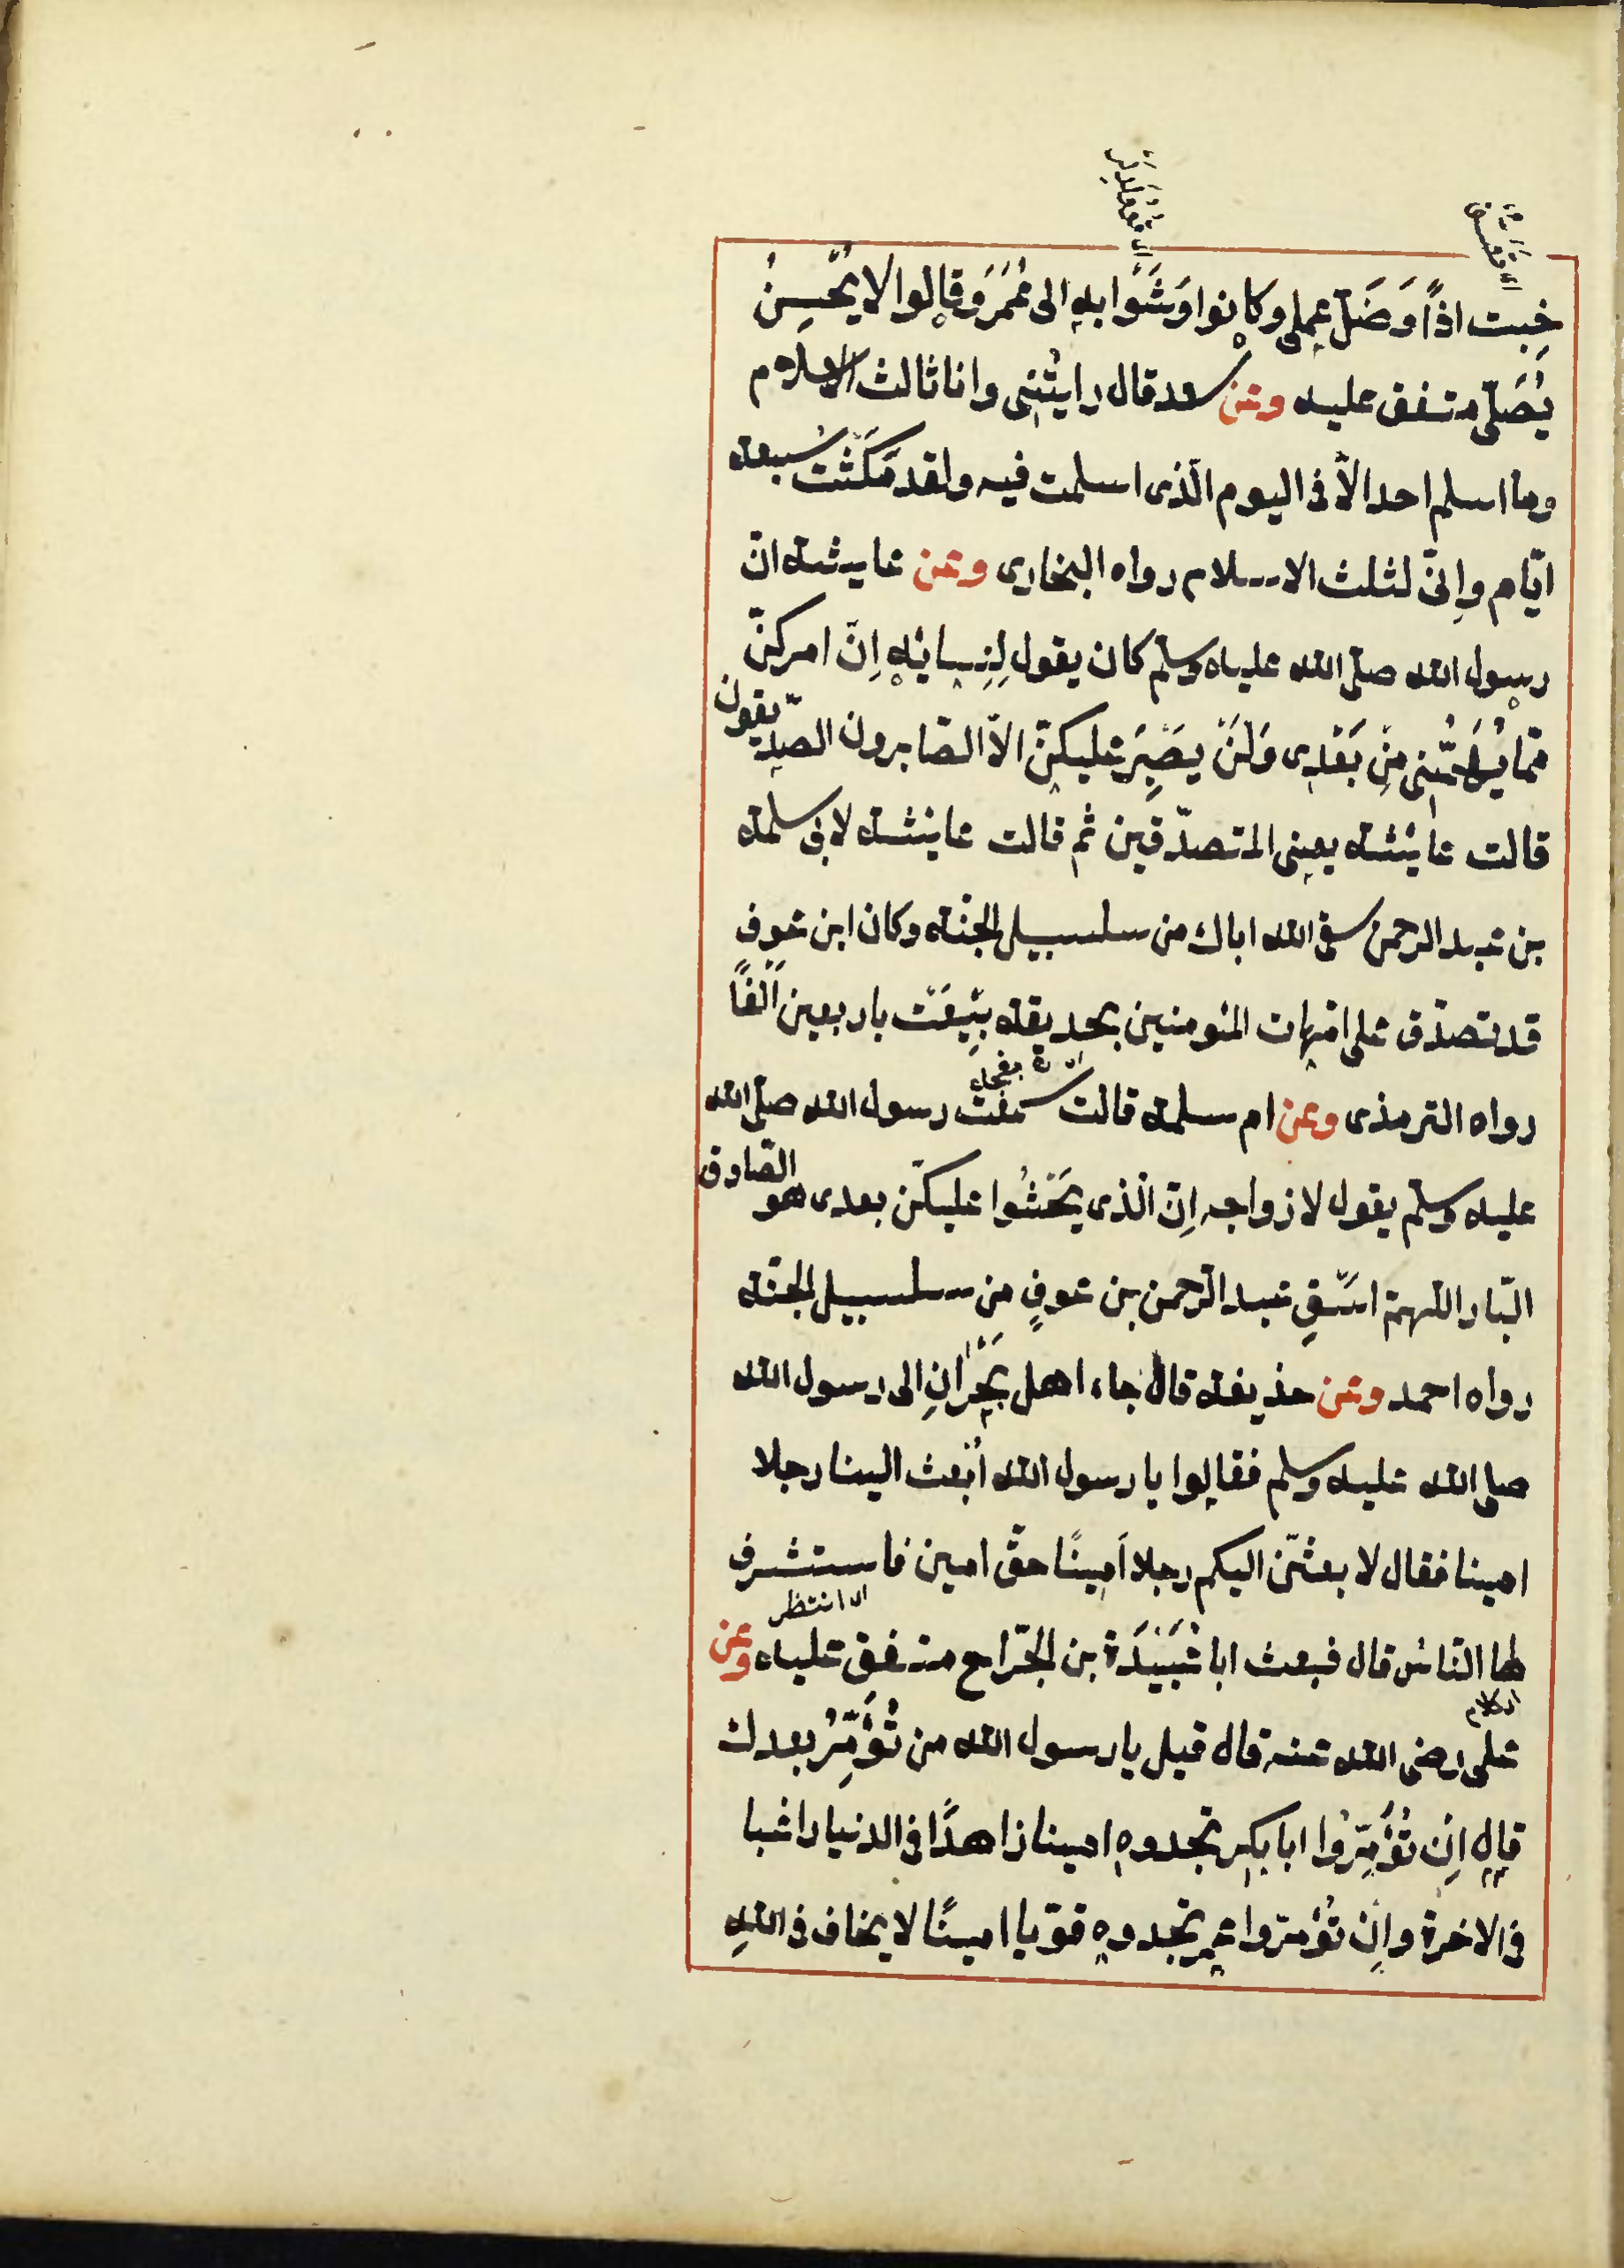 خِبت اذًا وَضَلّ عملى وكانوا وَشَوْا به الى عُمَرَ وقالوا لا يُحْسِنُ
يُصَلّى متفق عليه وعن سعد قال رايتُنى وانا ثالث الاسلام
وما اسلم احد الاّ فى اليوم الّذى اسلمت فيه ولقد مَكَثْت سبعة
ايّام وإنّى لثلث الاسلام رواه البخارى وعن عايشة انّ
رسول الله صلّى الله عليه وسلّم كان يقول لِنِسائِه إنّ امركنّ
ممّا يُهِمُّنى مِنْ بَعْدِى وَلَنْ يصْبِرَ عليكنّ الاّ الصّابرون الصدّيقون
قالت عائشة يعنى المتصدّقين ثم قالت عائشة لابى سلمة
بن عبد الرحمن سقى الله اباك من سلسبيل الجنّة وكان ابن عوف
قد تصدّق على امّهات المؤمنين بحديقة بِيْعَتْ باربعين ألْفًا
رواه الترمذى وعن ام سلمة قالت سمعْتُ رسول الله صلّى الله
عليه وسلّم يقول لازواجه إنّ الّذى يَحْثُوا عليكنّ بعدى هو الصّادق
البّار اللّهمّ اسْقِ عبد الرّحمن بن عوفٍ من سلسبيل الجنّة
رواه احمد وعن حذيفة قال جاء اهل نَجْرَانِ الى رسول الله
صلى الله عليه وسلم فقالوا يا رسول الله اُبْعث الينا رجلا
امينا فقال لابعثنّ اليكم رجلا اَمِينًا حقّ امين فاستشرف
اى انتظر
لها النّاسُ قال فبعث ابا عُبَيْدَة بن الجرّاح متفق عليه وعن
على رضى الله عنه قال قيل يا رسول الله من نُؤَمِّرُ بعدك
قال اِنْ تُؤَمِّرُوا ابا بكر تجدوه امينا زاهدًا فى الدنيا راغبا
فى الاخرة وإنْ تُؤمّروا عمر تجدوه قويّا امينًا لا يخاف فى اللهِ